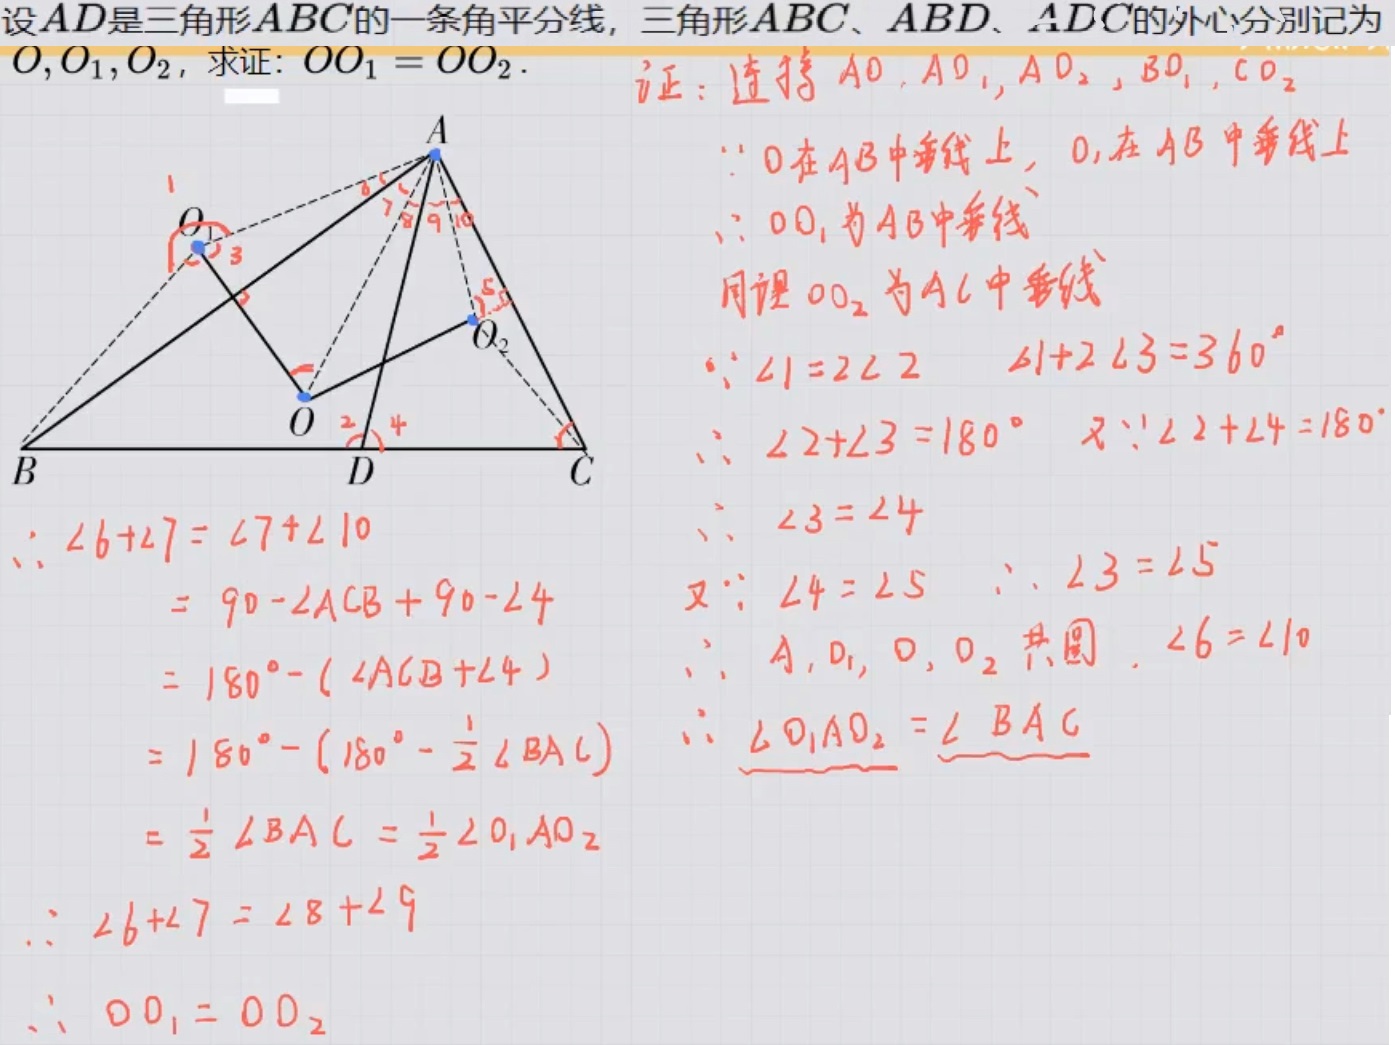 设AD是三角形ABC的一条角平分线，三角形ABC、ABD、ADC的外心分别记为
O, O₁, O₂，求证：OO₁ = OO₂.
证：连接 AO, AO₁, AO₂, BO₁, CO₂
∵ O在AB中垂线上，O₁在AB中垂线上
∴ OO₁为AB中垂线
同理 OO₂ 为AC中垂线
∵ ∠1=2∠2 ∠1+2∠3=360°
∴ ∠2+∠3=180° 又∵∠2+∠4=180°
∴ ∠3=∠4
又∵ ∠4=∠5 ∴ ∠3=∠5
∴ A, O₁, O, O₂ 共圆. ∠6=∠10
∴ ∠O₁AO₂ = ∠BAC
A
1
6
7
8
9
10
O₁
3
5
O₂
O
2
4
B
D
C
∴ ∠6+∠7=∠7+∠10
= 90-∠ACB+90-∠4
= 180°-(∠ACB+∠4)
= 180°-(180°-½∠BAC)
= ½∠BAC = ½∠O₁AO₂
∴ ∠6+∠7=∠8+∠9
∴ OO₁=OO₂